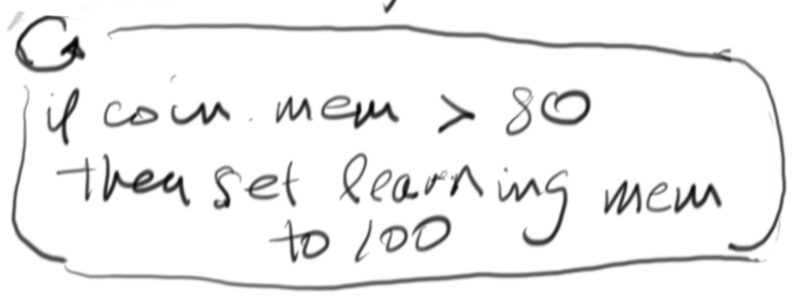 if coin. mem > 80
then set learning mem
to 100